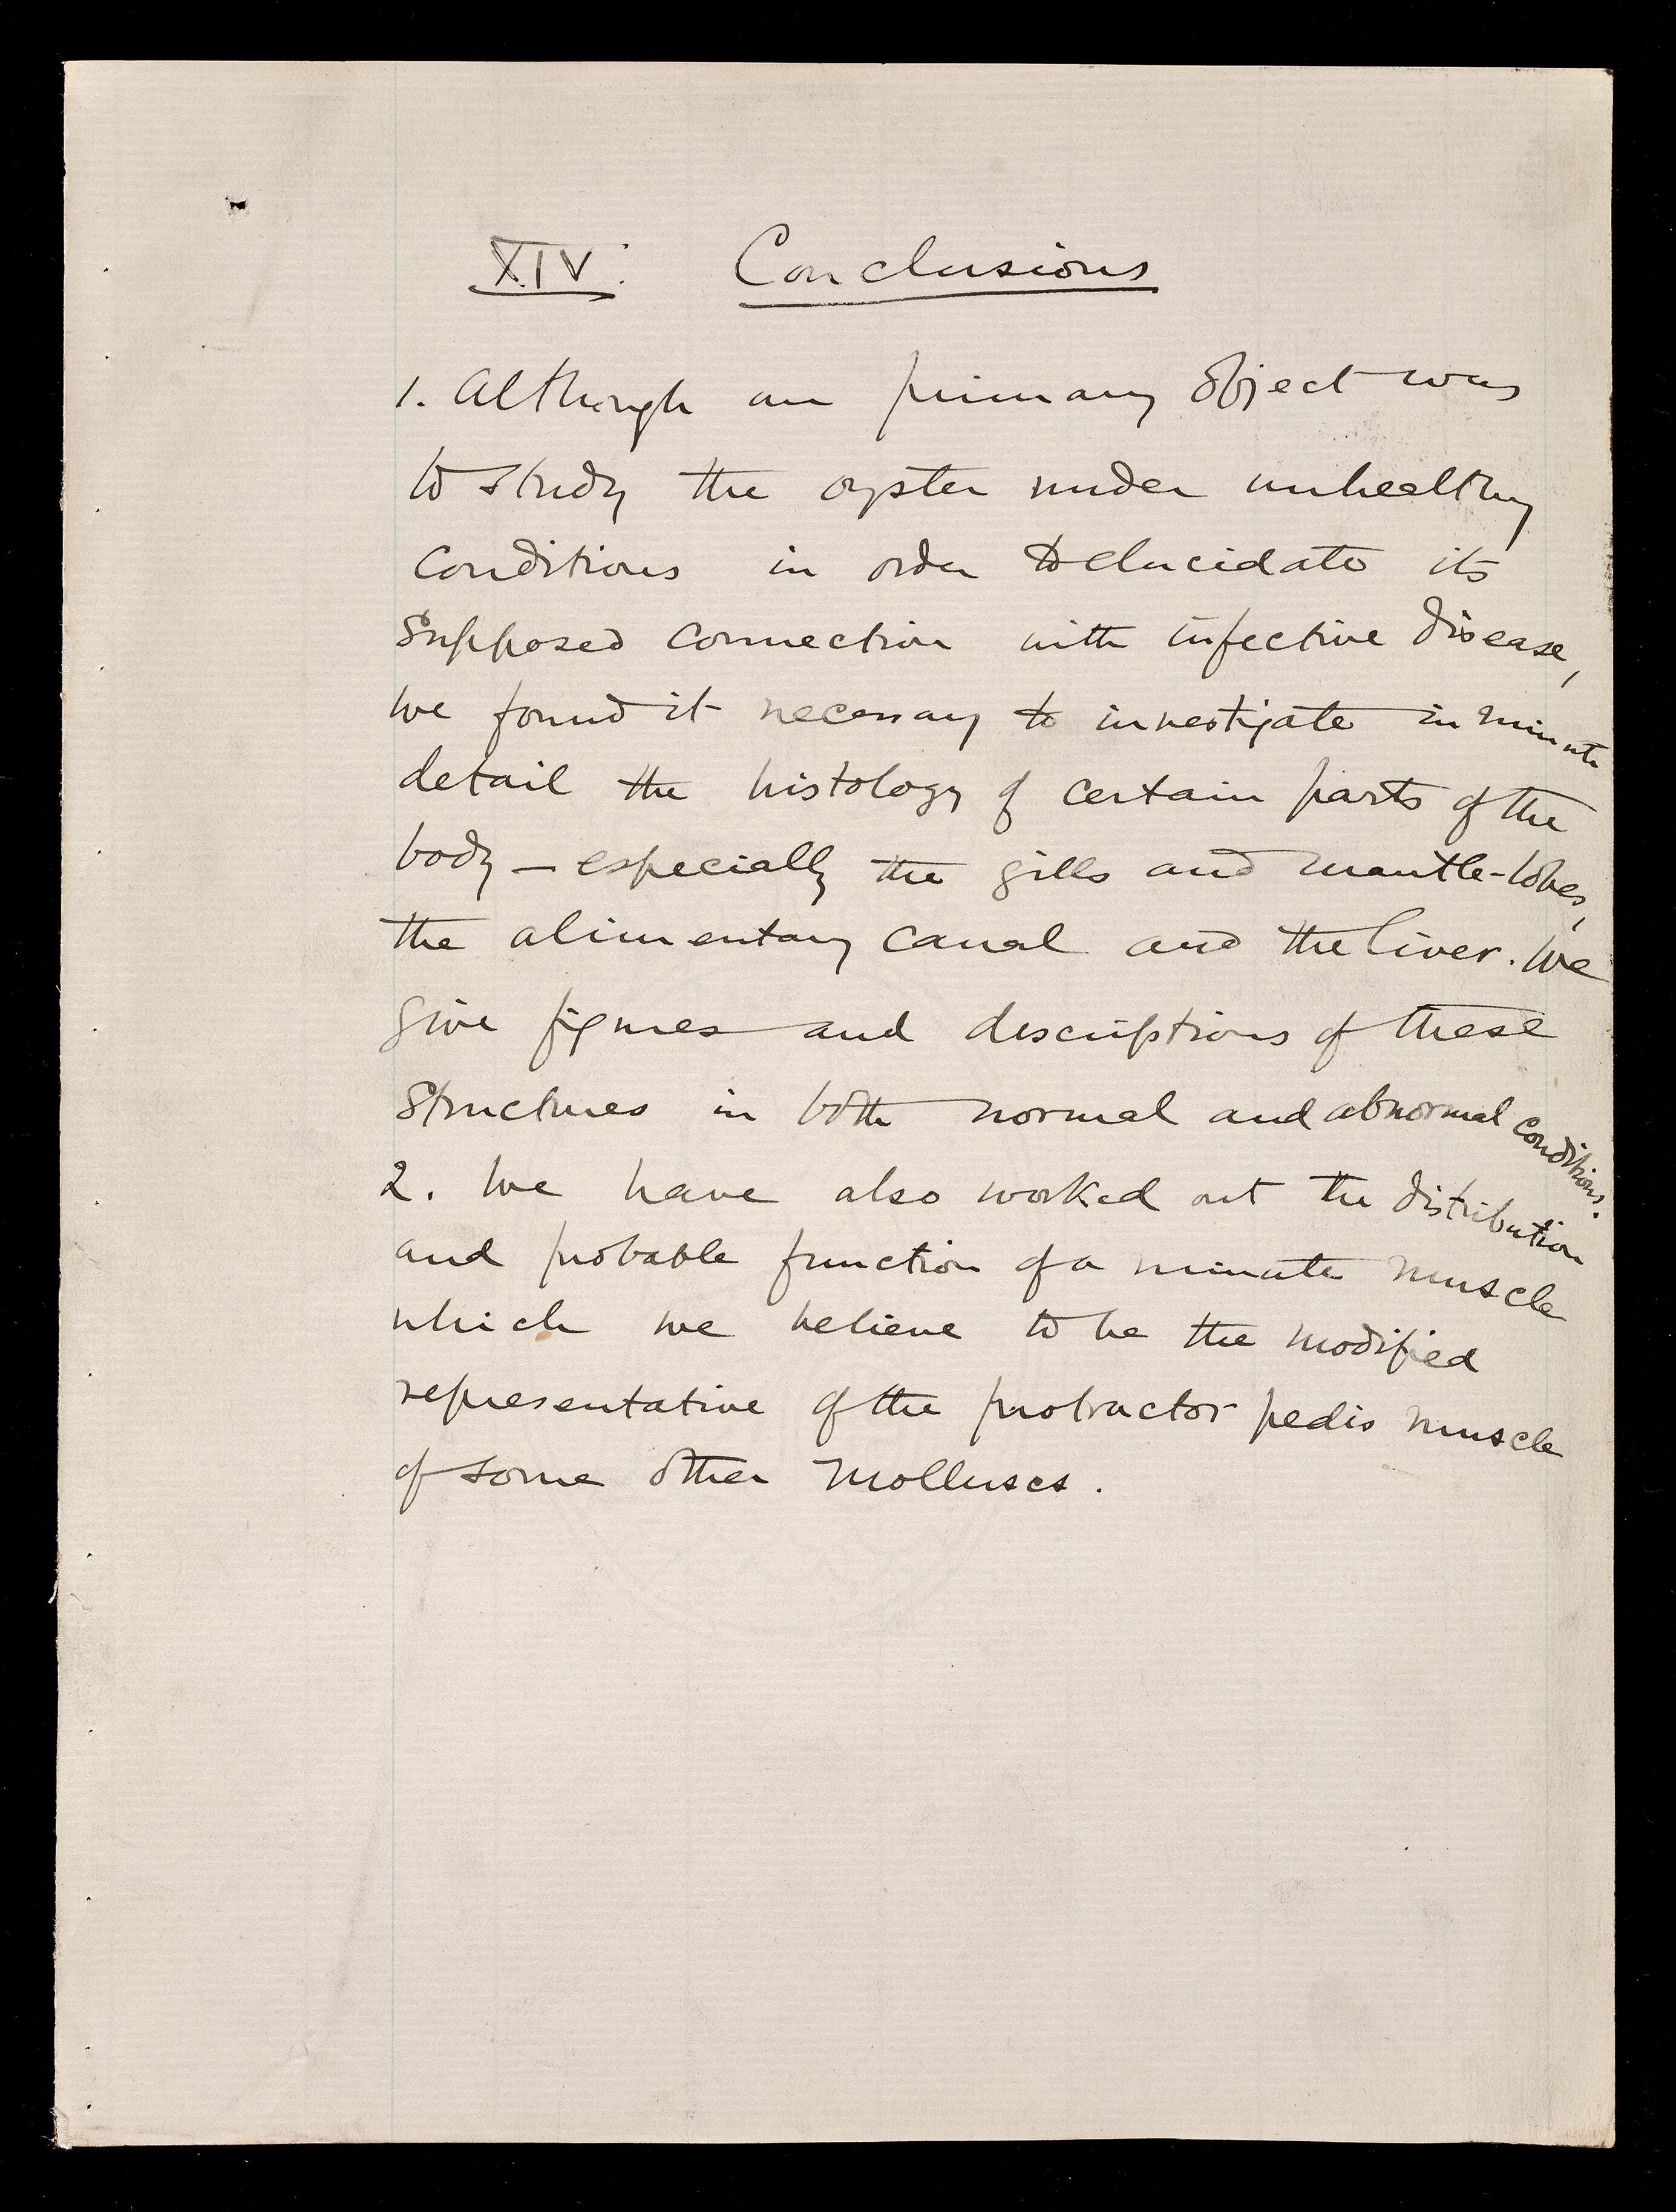 XIV. Conclusions
1. Although our primary object was
to study the oyster under unhealthy
conditions in order to elucidate its
supposed connection with infective disease,
we found it necessary to investigate in minute
detail the histology of certain parts of the
body — especially the gills and mantle-lobes,
the alimentary canal and the liver. We
give figures and descriptions of these
structures in both normal and abnormal conditions.
2. We have also worked out the distribution
and probable function of a minute muscle
which we believe to be the modified
representative of the protractor pedis muscle
of some other Molluscs.